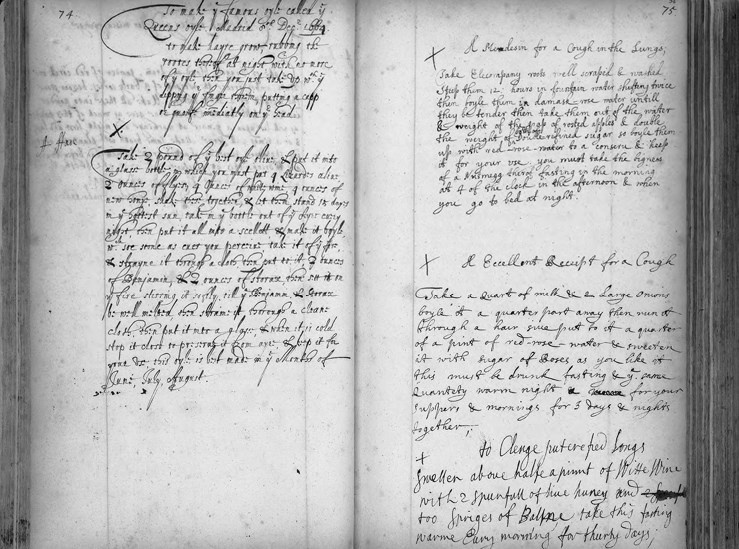 74
To make ye famous oyle called ye
Queens oyle
to make hayre grow, rubbing the
rootes thereof at night with as more
of ye oyle then you just take up wth ye
dipping ye finger therein, putting a capp
or imediatly on ye head.
X
Take 2 pound of ye best oyle olive & put it into
a glass bottle, in which you must put 4 alive
2 ounces of 4 ounces of wine, 4 ounces of
new shake these together, & let them stand 12 days
in ye hottest sun, take in ye bottle out of ye every
night, then put it all into a scellett, & make it boyle,
as soone as ever you perceive take it of ye fire,
& strayne it through a cloth then put to it 2 ounces
of Benjamin, & 2 ounces of Storax, then sett it on
ye fire stirring it softly, till ye Benjamin, & Storax
be well melted, then straine it through a cleane
cloth, then put it into a glass, & when it is cold
stop it close to preserve it from ayre, & keep it for
your use this oyle is best made in ye Months of
June, July, August.
75
X
A for a Cough in the Lungs;
Take Elecampany roots well scraped & washed
steep them 12 hours in fountain water shifting twice
then boyle them in damask rose water untill
they be tender then take them out of the water
& weight of the pap of rosted apples & double
the weight of refined sugar so boyle them
up with red rose water to a conserve & keep
it for your use you must take the bigness
of a Nutmegg therof fasting in the morning
at 4 of the clock in the afternoon & when
you go to bed at night.
X
A Eccellent Receipt for a Cough
Take a Quart of milk & 2 Large Onions
boyle it a quarter part away then run it
through a hair sive put to it a quarter
of a pint of red-rose water & sweeten
it with sugar of Roses as you like it
this must be drunk fasting & ye same
Quantety warm night & for your
suppers & mornings for 3 days & nights
together;
X
to Clenge puterefied Longs
above halfe a pinnt of Witte Wine
with 2 spunfull of live huney and
too Spriges of Balme take this fasting
warme Every morning for thurty days;